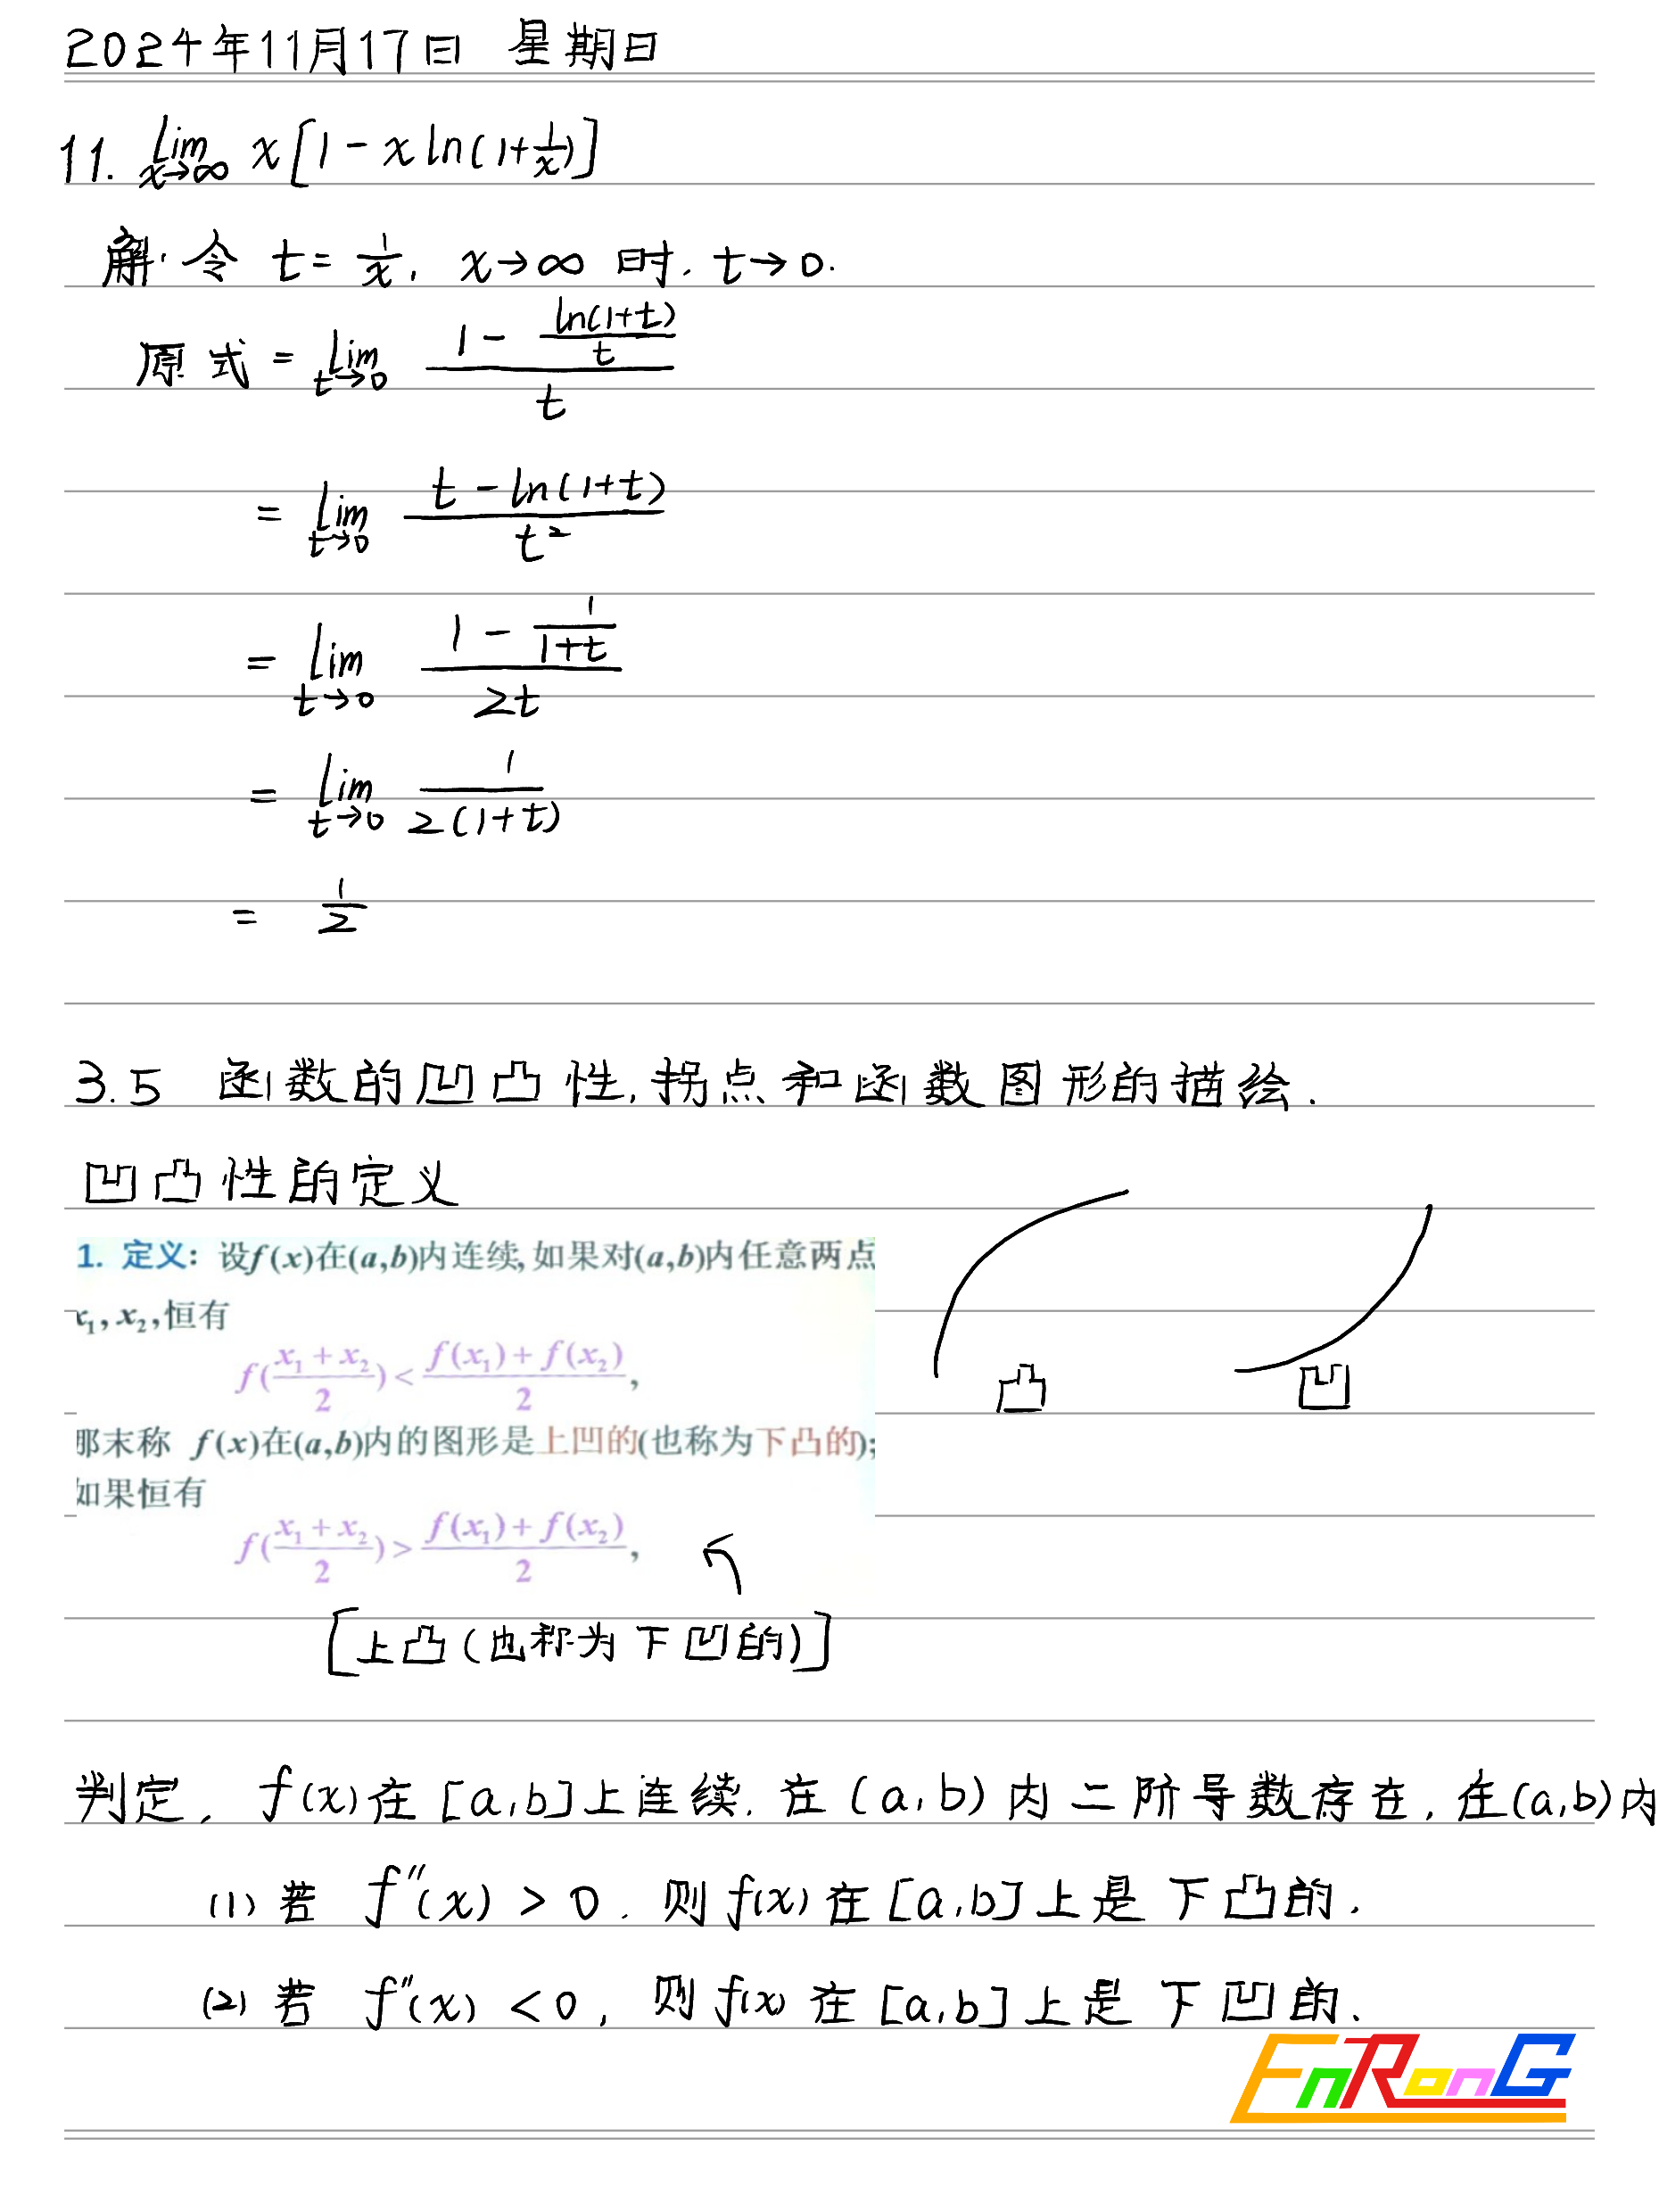 2024年11月17日 星期日
11. lim x→∞ x[1-xln(1+1/x)]
解. 令 t=1/x, x→∞ 时, t→0.
原式 = lim t→0 (1-ln(1+t)/t)/t
= lim t→0 (t-ln(1+t))/t²
= lim t→0 (1-1/(1+t))/2t
= lim t→0 1/2(1+t)
= 1/2
3.5 函数的凹凸性,拐点和函数图形的描绘.
凹凸性的定义
1. 定义: 设f(x)在(a,b)内连续, 如果对(a,b)内任意两点
x₁, x₂, 恒有
f((x₁+x₂)/2) < (f(x₁)+f(x₂))/2,
凸 凹
那末称 f(x)在(a,b)内的图形是上凹的(也称为下凸的);
如果恒有
f((x₁+x₂)/2) > (f(x₁)+f(x₂))/2,
[上凸(也称为下凹的)]
判定. f(x)在[a,b]上连续. 在(a,b)内二阶导数存在, 在(a,b)内
(1) 若 f″(x) > 0. 则 f(x) 在[a,b]上是下凸的.
(2) 若 f″(x) < 0, 则 f(x) 在[a,b]上是下凹的.
EnRonG